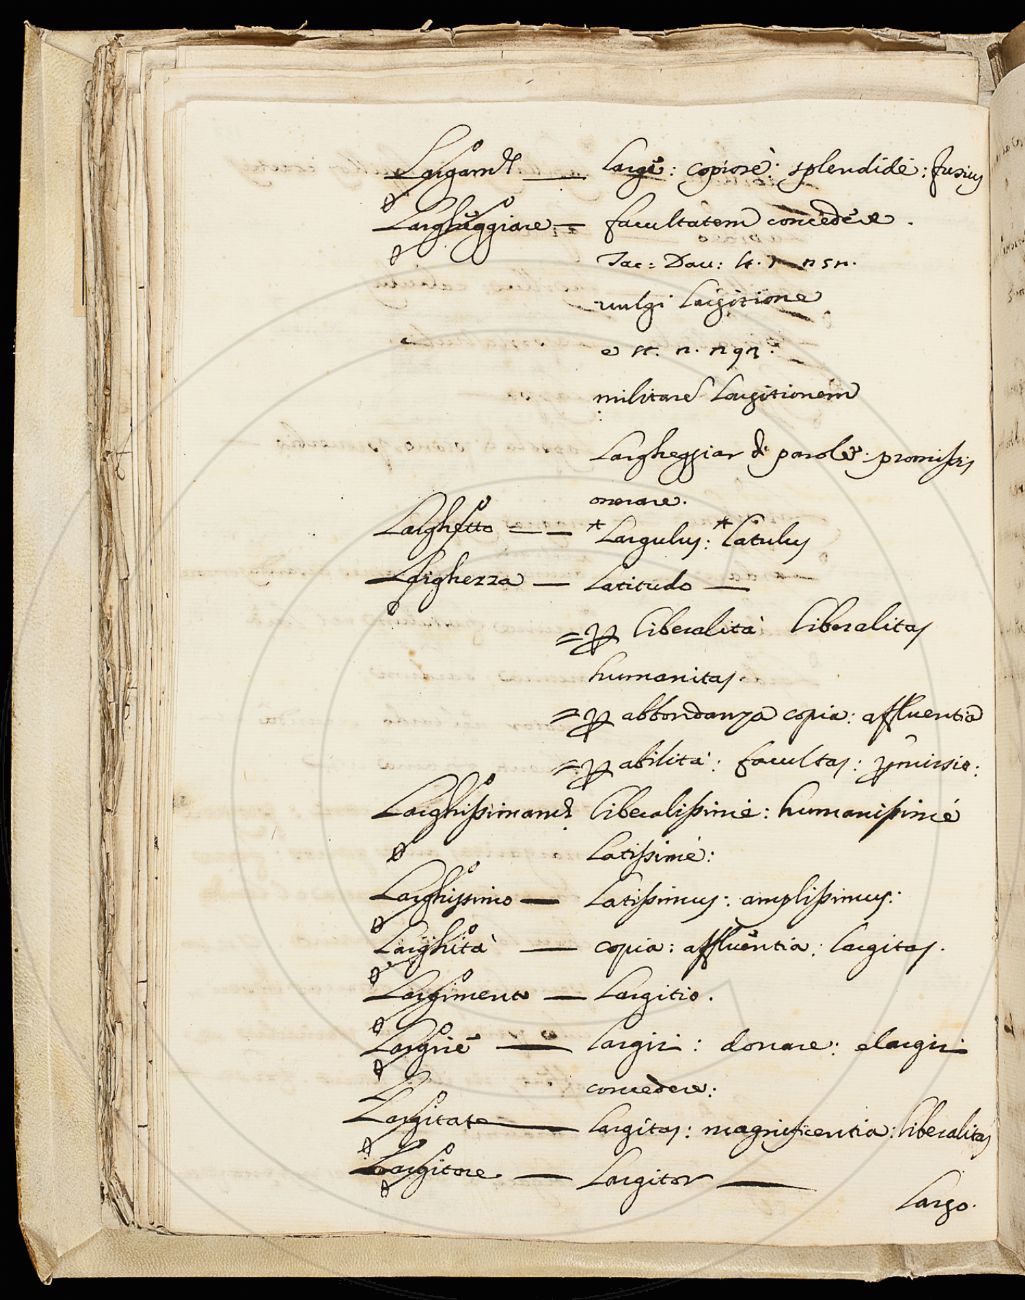 Largam.te — largè: copiosè: splendidè: fusius
Largheggiare — facultatem concedere.
Tac: Dav: st. 1
vulgi largitione
e st.
militare largitionem
Largheggiar di parole: promissis
onerare.
Larghetto — *Largulus: *Latulus
Larghezza — Latitudo —
= p liberalità liberalitas
humanitas.
= p abbondanza copia: affluentia
= p abilità: facultas: p̃missio:
Larghissimam.te liberalissimè: humanissimè
latissimè:
Larghissimo — Latissimus: amplissimus:
Larghità — copia: affluentia: largitas.
Largimento — Largitio.
Largire — largiri: donare: elargiri
concedere:
Largitate — largitas: magnificentia: liberalitas
Largitore — Largitor —
Largo.